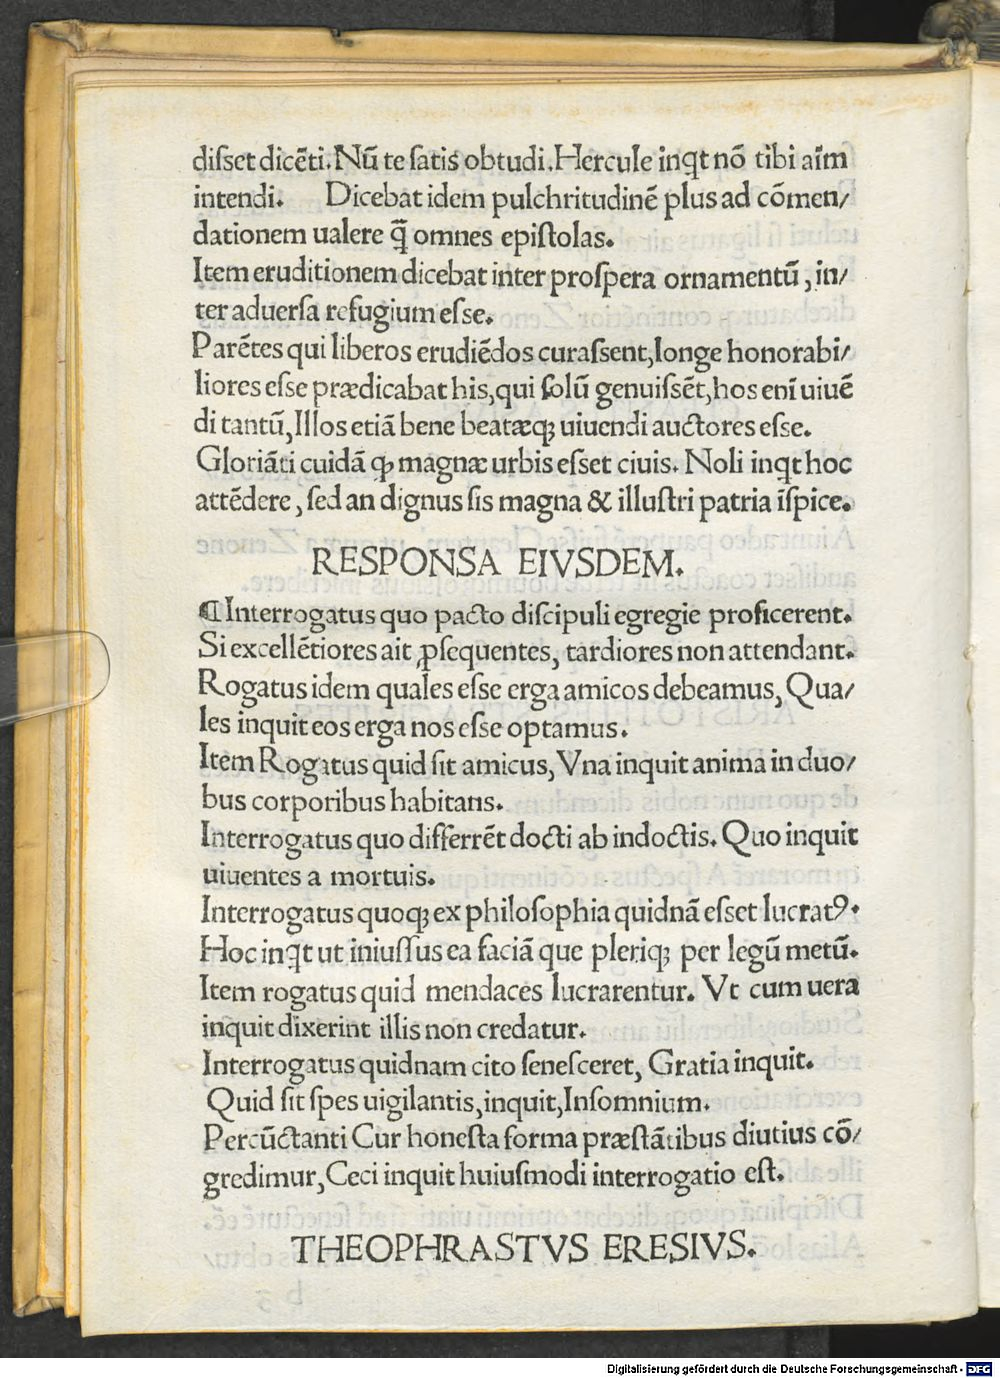 diſset dicēti. Nū te ſatis obtudi. Hercule inq̃t nō tibi aīm
intendi. Dicebat idem pulchritudinē plus ad cōmen/
dationem ualere q̄̃ omnes epiſtolas.
Item eruditionem dicebat inter proſpera ornamentū, in/
ter aduerſa refugium eſse.
Parētes qui liberos erudiēdos curaſsent, longe honorabi/
liores eſse prædicabat his, qui ſolū genuiſsēt, hos enī uiuē
di tantū, Illos etiā bene beatæq; uiuendi auctores eſse.
Gloriāti cuidā ꝙ magnæ urbis eſset ciuis. Noli inq̃t hoc
attēdere, ſed an dignus ſis magna & illuſtri patria īſpice.
RESPONSA EIVSDEM.
¶ Interrogatus quo pacto diſcipuli egregie proficerent.
Si excellētiores ait ꝓſequentes, tardiores non attendant.
Rogatus idem quales eſse erga amicos debeamus, Qua/
les inquit eos erga nos eſse optamus.
Item Rogatus quid ſit amicus, Vna inquit anima in duo/
bus corporibus habitans.
Interrogatus quo differrēt docti ab indoctis. Quo inquit
uiuentes a mortuis.
Interrogatus quoq; ex philoſophia quidnā eſset lucratꝰ.
Hoc inq̃t ut iniuſſus ea faciā que pleriq; per legū metū.
Item rogatus quid mendaces lucrarentur. Vt cum uera
inquit dixerint illis non credatur.
Interrogatus quidnam cito ſeneſceret, Gratia inquit.
Quid ſit ſpes uigilantis, inquit, Inſomnium.
Percūctanti Cur honeſta forma præſtātibus diutius cō/
gredimur, Ceci inquit huiuſmodi interrogatio eſt.
THEOPHRASTVS ERESIVS.
Digitalisierung gefördert durch die Deutsche Forschungsgemeinschaft - DFG